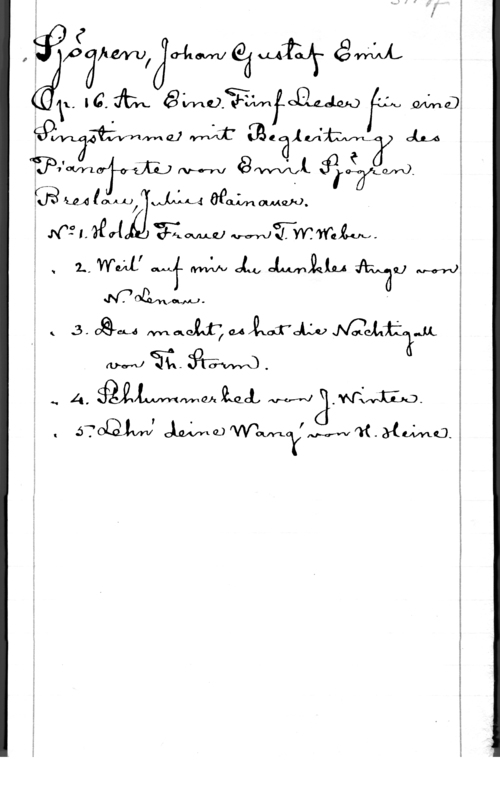 Sjögren, Johan Gustaf Emil
Op. 16. An Eine. Fünf Lieder für eine
Singstimme mit Begleitung des
Pianoforte von Emil Sjögren.
Breslau, Julius Hainauer.
No 1. Holde Fraue von F. W. Weber.
" 2. Weil' auf mir du dunkles Auge von
N. Lenau.
" 3. Das macht, es hat die Nachtigall
von Th. Storm.
" 4. Schlummerlied von J. Winter.
" 5. Lehn' deine Wang' von H. Heine.